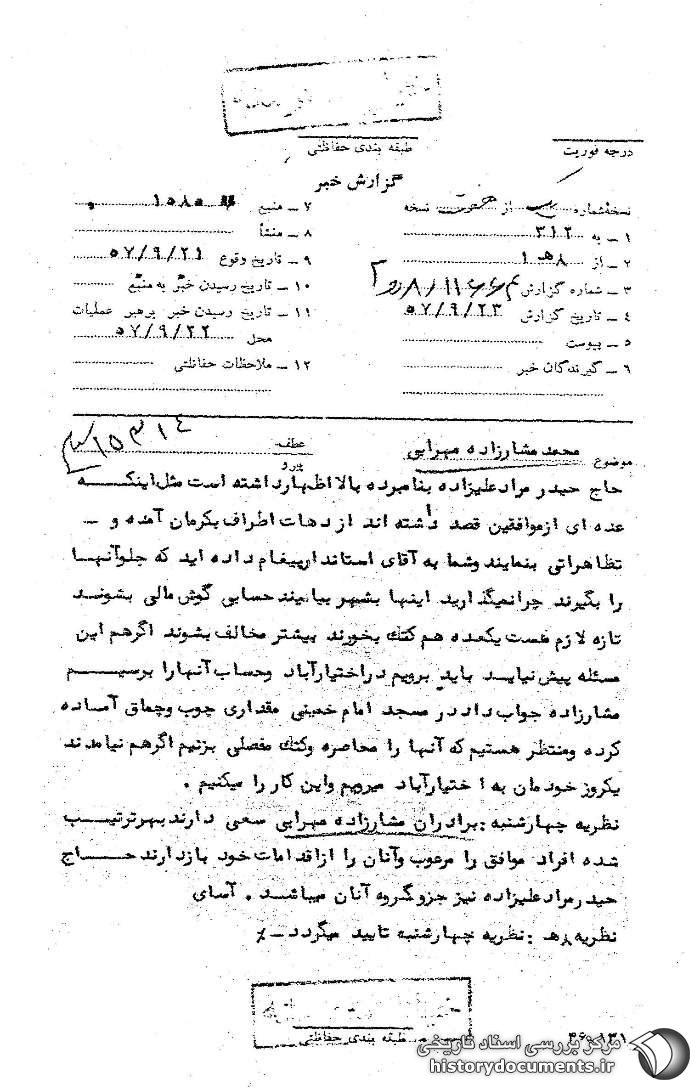 طبقه بندی حفاظتی
درجه فوریت
گزارش خبر
نسخه شماره از نسخه
۱ ـ به ۳۱۲
۲ ـ از ۸ هـ ۱
۳ ـ شماره گزارش
۴ ـ تاریخ گزارش ۵۷/۹/۲۳
۵ ـ پیوست
۶ ـ گیرندگان خبر
۷ ـ منبع ۱۵۸۵
۸ ـ منشأ
۹ ـ تاریخ وقوع ۵۷/۹/۲۱
۱۰ ـ تاریخ رسیدن خبر به منبع
۱۱ ـ تاریخ رسیدن خبر برهبر عملیات
محل ۵۷/۹/۲۲
۱۲ ـ ملاحظات حفاظتی
موضوع محمد مشارزاده مهرابی
عطف
پیرو
حاج حیدر مراد علیزاده بنامبرده بالا اظهار داشته است مثل اینکه
عده ای از موافقین قصد داشته اند از دهات اطراف بکرمان آمده و ـ
تظاهراتی بنمایند وشما به آقای استاندار پیغام داده اید که جلو آنها
را بگیرند چرا نمیگذارید اینها بشهر بیایند حسابی گوش مالی بشوند
تازه لازم هست یکعده هم کتک بخورند بیشتر مخالف بشوند اگر هم این
مسئله پیش نیاید باید برویم در اختیارآباد وحساب آنها را برسیم
مشارزاده جواب داد در مسجد امام خمینی مقداری چوب وچماق آماده
کرده ومنتظر هستیم که آنها را محاصره وکتک مفصلی بزنیم اگر هم نیامدند
یکروز خودمان به اختیارآباد میرویم واین کار را میکنیم .
نظریه چهارشنبه : برادران مشارزاده مهرابی سعی دارند بهر ترتیب
شده افراد موافق را مرعوب وآنان را از اقدامات خود باز دارند حاج
حیدر مراد علیزاده نیز جزو گروه آنان میباشد . آسای
نظریه ۸ هـ : نظریه چهارشنبه تایید میگردد ـ٪
طبقه بندی حفاظتی
مرکز بررسی اسناد تاریخی
historydocuments.ir